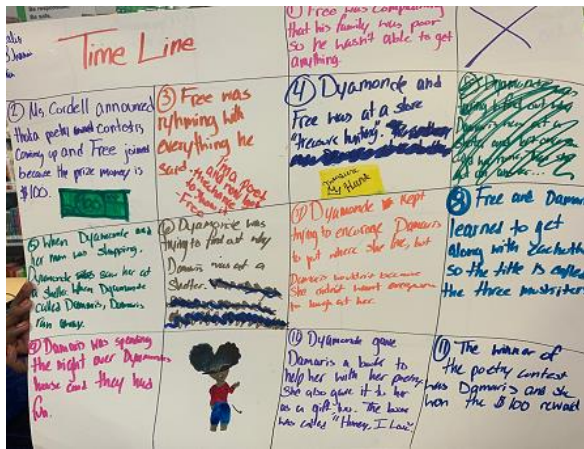 Time Line
① Free was complaining
that his family was poor
so he wasn't able to get
anything.
② Ms. Cordell announced
that a poetry contest is
coming up and Free joined
because the prize money is
$100.
③ Free was
ryhming with
everything he
said.
④ Dyamonde and
Free was at a store
"treasure hunting."
Treasure
Hunt
⑤ When Dyamonde and
her mom was shopping.
Dyamonde saw her at
a shelter. When Dyamonde
called Damaris, Damaris
ran away.
⑥ Dyamonde was
trying to find out why
Damaris was at a
shelter.
⑦ Dyamonde kept
trying to encourage Damaris
to put where she live, but
Damaris wouldn't because
she didn't want everyone
to laugh at her.
⑧ Free and Damaris
learned to get
along with
so the title is called
the three
⑨ Damaris was spending
the night over Dyamonde's
house and they had
fun.
⑩ Dyamonde gave
Damaris a book to
help her with her poetry.
She also gave it to her
as a gift too. The book
was called "Honey, I Love".
⑪ The winner of
the poetry contest
was Damaris and she
won the $100 reward